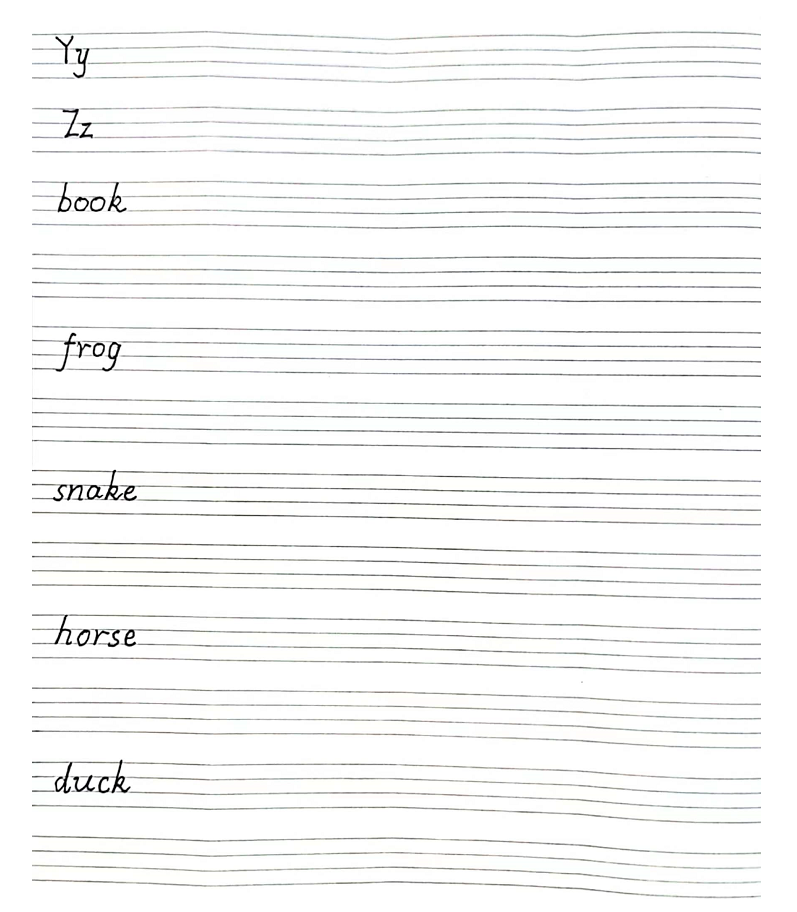 Yy
Zz
book
frog
snake
horse
duck